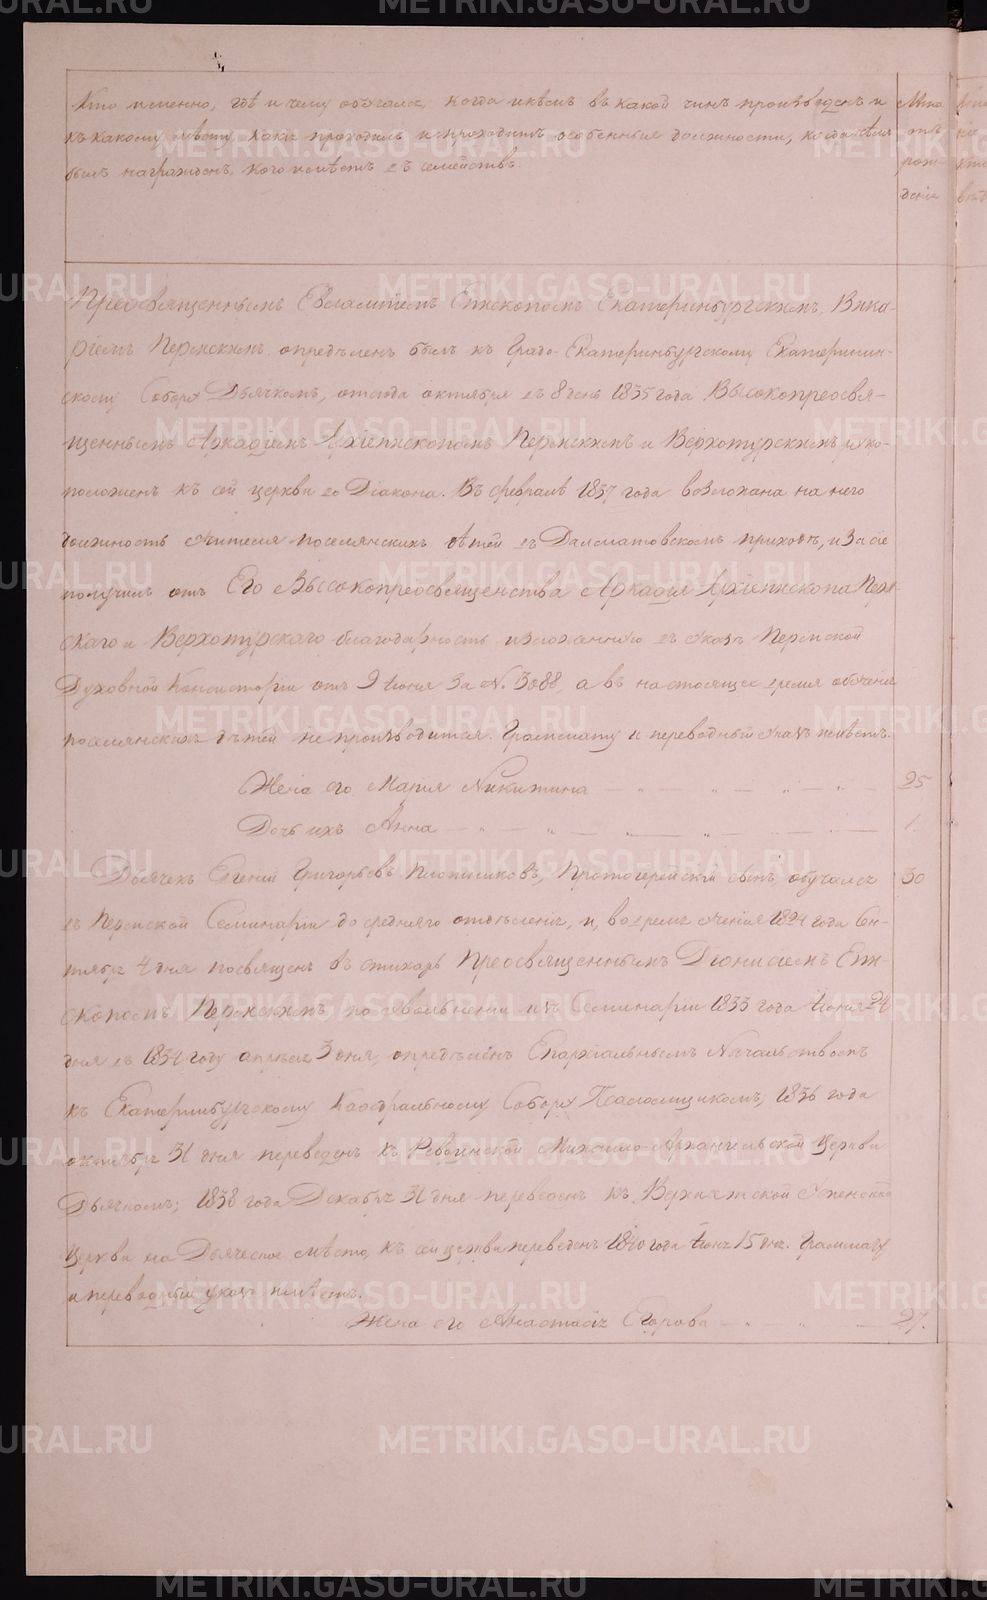 Кто именно, гдѣ и чему обучался, когда и кѣмъ въ какой чинъ произведенъ и
къ какому мѣсту, какъ проходилъ и проходитъ особенныя должности, когда чѣмъ
былъ награжденъ, кого имѣетъ въ семействѣ
Лѣта
отъ
рож-
денія
Преосвященнымъ Евлампіемъ Епископомъ Екатеринбургскимъ, Вика-
ріемъ Пермскимъ опредѣленъ былъ къ Градо-Екатеринбургскому Екатеринин-
скому Собору Дьячкомъ, отсюда октября въ 8 день 1835 года Высокопреосвя-
щеннымъ Аркадіемъ Архіепископомъ Пермскимъ и Верхотурскимъ руко-
положенъ къ сей церкви во Діакона. Въ февралѣ 1837 года возложена на него
должность Учителя поселянскихъ дѣтей въ Далматовскомъ приходѣ, и за сіе
получилъ отъ Его Высокопреосвященства Аркадія Архіепископа Перм-
скаго и Верхотурскаго благодарность изложенную въ указѣ Пермской
Духовной Консисторіи отъ 9 Іюня за N. 3088, а въ настоящее время обученія
поселянскихъ дѣтей не производится. Грамату и переводный указъ имѣетъ.
Жена его Марія Никитина 25
Дочь ихъ Анна 1.
Дьячекъ Евгеній Григорьевъ Плотниковъ, Протоіерейскій сынъ, обучался 30
въ Пермской Семинаріи до средняго отдѣленія, и, во время ученія 1824 года Сен-
тября 4 дня посвященъ въ стихарь Преосвященнымъ Діонисіемъ Епи-
скопомъ Пермскимъ по увольненіи изъ Семинаріи 1833 года Іюня 24
дня въ 1834 году апрѣля 3 дня, опредѣленъ Епархіальнымъ Начальствомъ
къ Екатеринбургскому Каѳедральному Собору Псаломщикомъ, 1836 года
октября 31 дня переведенъ къ Ревдинской Михаило-Архангельской Церкви
Дьячкомъ; 1838 года Декабря 31 дня переведенъ къ Успенской
Церкви на Дьяческое мѣсто, къ сей церкви переведенъ 1840 года Іюня 15 дня. Грамату
и переводный указъ имѣетъ.
Жена его Анастасія Егорова 27.
METRIKI.GASO-URAL.RU